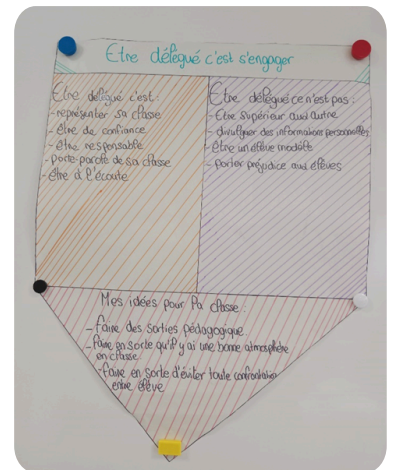 Etre délégué c'est s'engager
Etre délégué c'est :
- représenter sa classe
- être de confiance
- être responsable
- porte-parole de sa classe
- être à l'écoute
Etre délégué ce n'est pas :
- Etre supérieur aux autre
- divulguer des informations personnelles
- Etre un élève modèle
- porter préjudice aux élèves
Mes idées pour la classe :
- faire des sorties pédagogique
- faire en sorte qu'il y ai une bonne atmosphère
en classe
- faire en sorte d'éviter toute confrontation
entre élève